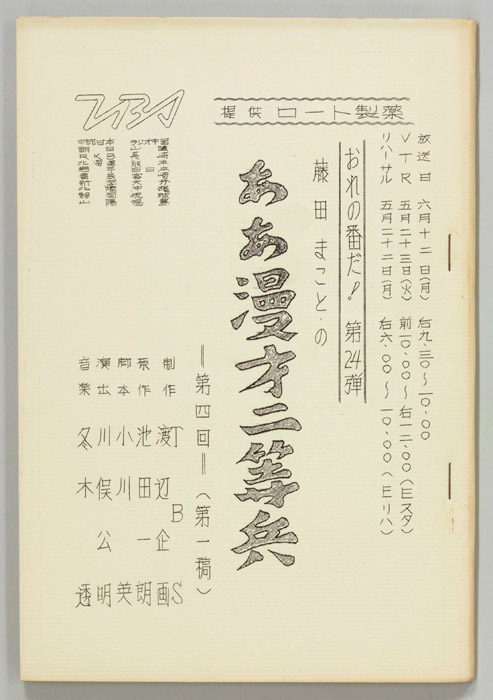 提供 ロート製薬
放送日 六月十二日(月) 右九.三〇〜一〇.〇〇
VTR 五月二十三日(火) 前一〇.〇〇〜右一二.〇〇(Eスタ)
リハーサル 五月二十二日(月) 右六.〇〇〜一〇.〇〇(Eリハ)
おれの番だ! 第24弾
藤田まこと・の
ああ漫才二等兵
=第四回=(第一稿)
TBS
制作 渡辺企画
原作 池田一朗
脚本 小川英
演出 川俣公明
音楽 冬木透